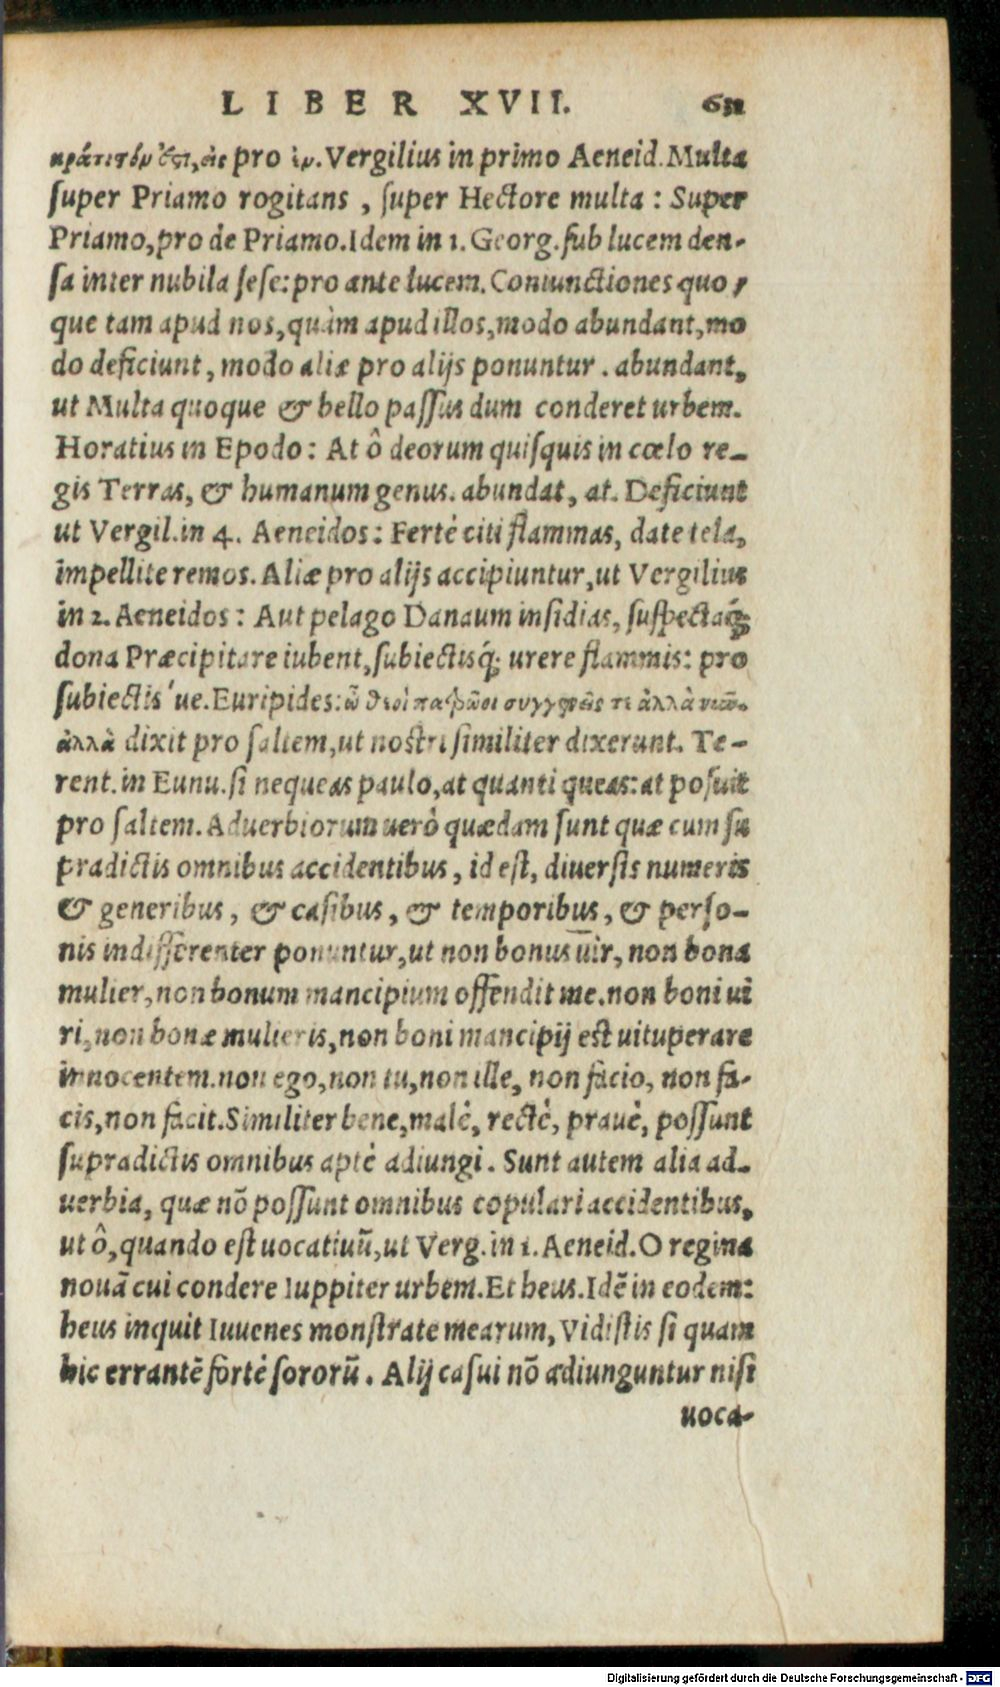 LIBER XVII. 631
κράτιστόν ἐστι, εἰς pro ἐν. Vergilius in primo Aeneid. Multa
ſuper Priamo rogitans , ſuper Hectore multa : Super
Priamo, pro de Priamo. Idem in 1. Georg. ſub lucem den-
ſa inter nubila ſeſe: pro ante lucem. Coniunctiones quo
que tam apud nos, quàm apud illos, modo abundant, mo
do deficiunt, modo aliæ pro alijs ponuntur . abundant,
ut Multa quoque & bello paſſus dum conderet urbem.
Horatius in Epodo : At ô deorum quiſquis in cœlo re-
gis Terras, & humanum genus. abundat, at. Deficiunt
ut Vergil. in 4. Aeneidos : Fertè citi flammas, date tela,
impellite remos. Aliæ pro alijs accipiuntur, ut Vergilius
in 2. Aeneidos : Aut pelago Danaum inſidias, ſuſpectaq́;
dona Præcipitare iubent, ſubiectisq́; urere flammis: pro
ſubiectis 've. Euripides: ὦ θεοὶ πατρῷοι συγγένεσθε ἀλλὰ νῦν.
ἀλλὰ dixit pro ſaltem, ut noſtri ſimiliter dixerunt. Te-
rent. in Eunu. ſi nequeas paulo, at quanti queas: at poſuit
pro ſaltem. Aduerbiorum uerò quædam ſunt quæ cum ſu
pradictis omnibus accidentibus, id eſt, diuerſis numeris
& generibus, & caſibus, & temporibus, & perſo-
nis indifferenter ponuntur, ut non bonus uir, non bona
mulier, non bonum mancipium offendit me. non boni ui
ri, non bonæ mulieris, non boni mancipij eſt uituperare
innocentem. non ego, non tu, non ille, non facio, non fa-
cis, non facit. Similiter bene, malè, rectè, prauè, poſſunt
ſupradictis omnibus aptè adiungi. Sunt autem alia ad-
uerbia, quæ nõ poſſunt omnibus copulari accidentibus,
ut ô, quando eſt uocatiuũ, ut Verg. in 1. Aeneid. O regina
nouã cui condere Iuppiter urbem. Et heus. Idẽ in eodem:
heus inquit Iuuenes monſtrate mearum, Vidiſtis ſi quam
hic errantẽ fortè ſororũ. Alij caſui nõ adiunguntur niſi
uoca-
Digitalisierung gefördert durch die Deutsche Forschungsgemeinschaft - DFG